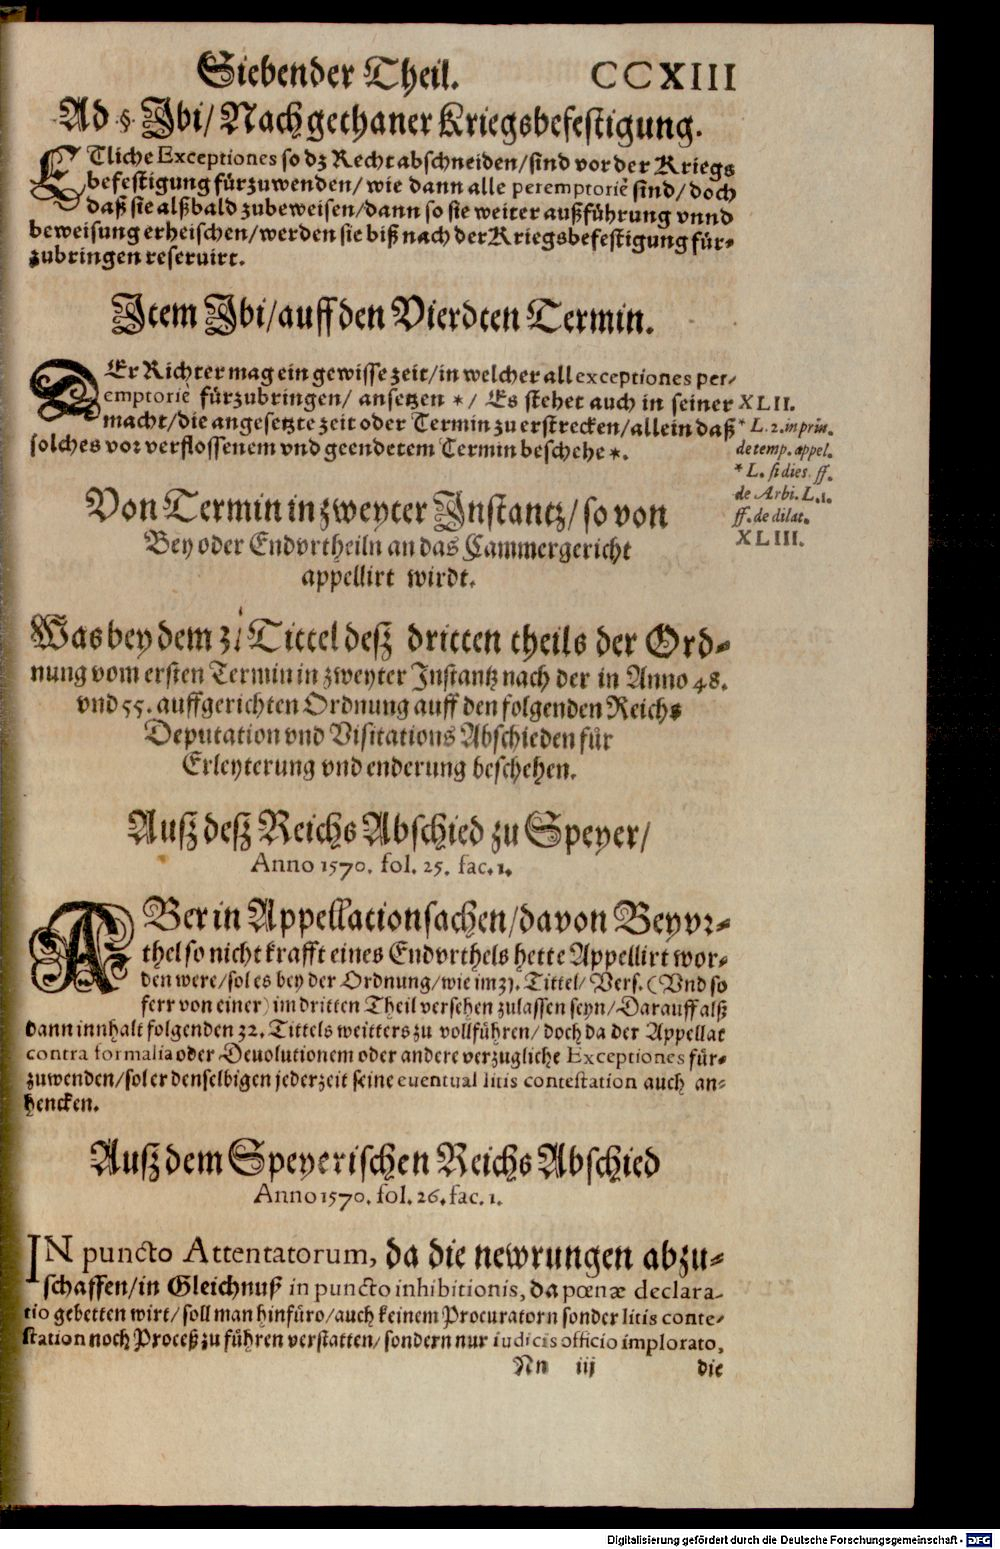 Siebender Theil. CCXIII
Ad §. Ibi/ Nach gethaner Kriegsbefestigung.
ETliche Exceptiones so dz Recht abschneiden/ sind vor der Kriegs
befestigung fürzuwenden/ wie dann alle peremptoriē sind/ doch
daß sie alßbald zubeweisen/ dann so sie weiter außführung vnnd
beweisung erheischen/ werden sie biß nach der Kriegsbefestigung für-
zubringen reseruirt.
Item Ibi/ auff den Vierdten Termin.
DEr Richter mag ein gewisse zeit/ in welcher all exceptiones per-
emptoriē fürzubringen/ ansetzen */ Es stehet auch in seiner
macht/ die angesetzte zeit oder Termin zu erstrecken/ allein daß
solches vor verflossenem vnd geendetem Termin beschehe *.
XLII.
* L. 2. in prin.
de temp. appel.
* L. si dies. ff.
de Arbi. L. 1.
ff. de dilat.
XLIII.
Von Termin in zweyter Instantz/ so von
Bey oder Endvrtheiln an das Cammergericht
appellirt wirdt.
Was bey dem 31 Tittel deß dritten theils der Ord-
nung vom ersten Termin in zweyter Instantz nach der in Anno 48.
vnd 55. auffgerichten Ordnung auff den folgenden Reichs
Deputation vnd Visitations Abschieden für
Erleyterung vnd enderung beschehen.
Auß deß Reichs Abschied zu Speyer/
Anno 1570. fol. 25. fac. 1.
ABer in Appellationsachen/ davon Beyvr-
thel so nicht krafft eines Endvrthels hette Appellirt wor-
den were/ sol es bey der Ordnung/ wie im 31. Tittel/ Vers. (Vnd so
ferr von einer) im dritten Theil versehen zulassen seyn/ Darauff alß
dann innhalt folgenden 32. Tittels weitters zu vollführen/ doch da der Appellat
contra formalia oder Deuolutionem oder andere verzugliche Exceptiones für-
zuwenden/ sol er denselbigen jederzeit seine euentual litis contestation auch an-
hencken.
Auß dem Speyerischen Reichs Abschied
Anno 1570. fol. 26. fac. 1.
IN puncto Attentatorum, da die newrungen abzu-
schaffen/ in Gleichnuß in puncto inhibitionis, da pœnæ declara-
tio gebetten wirt/ soll man hinfüro/ auch keinem Procuratorn sonder litis conte-
station noch Proceß zu führen verstatten/ sondern nur iudicis officio implorato,
Nn iij die
Digitalisierung gefördert durch die Deutsche Forschungsgemeinschaft - DFG